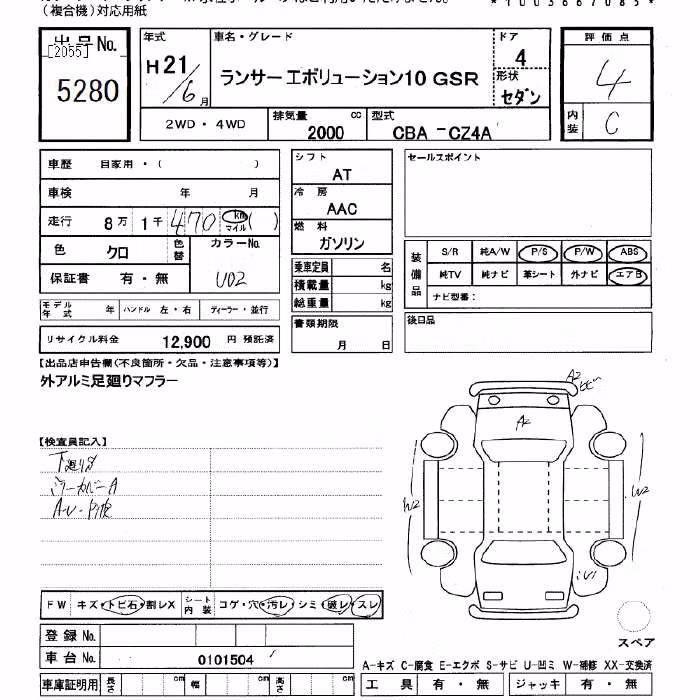 （複合機）対応用紙
出品No.
[2055]
5280
年式
H21/6月
車名・グレード
ランサーエボリューション10 GSR
ドア
4
形状
セダン
評価点
4
内装
C
2WD・4WD
排気量 cc
2000
型式
CBA -CZ4A
車歴 自家用・（ ）
車検 年 月
走行 8万 1千 470 km マイル ( )
色 クロ 色替
カラーNo.
U02
保証書 有・無
モデル年式 年 ハンドル 左・右 ディーラー・並行
リサイクル料金 12,900 円 預託済
シフト
AT
冷房
AAC
燃料
ガソリン
乗車定員 名
積載量 kg
総重量 kg
書類期限
月 日
セールスポイント
装備品
S/R 純A/W P/S P/W ABS
純TV 純ナビ 革シート 外ナビ エアB
ナビ型番：
後日品
【出品店申告欄(不良箇所・欠品・注意事項等)】
外アルミ足廻りマフラー
【検査員記入】
下廻りS
ミラーカバーA
A2
A2
W2
W2
U1
FW キズ・トビ石・割レX シート内装 コゲ・穴・汚レ・シミ・破レ・スレ
登録No.
車台No. 0101504
車庫証明用 長さ cm 幅 cm 高さ cm
スペア
A-キズ C-腐食 E-エクボ S-サビ U-凹ミ W-補修 XX-交換済
工具 有・無 ジャッキ 有・無